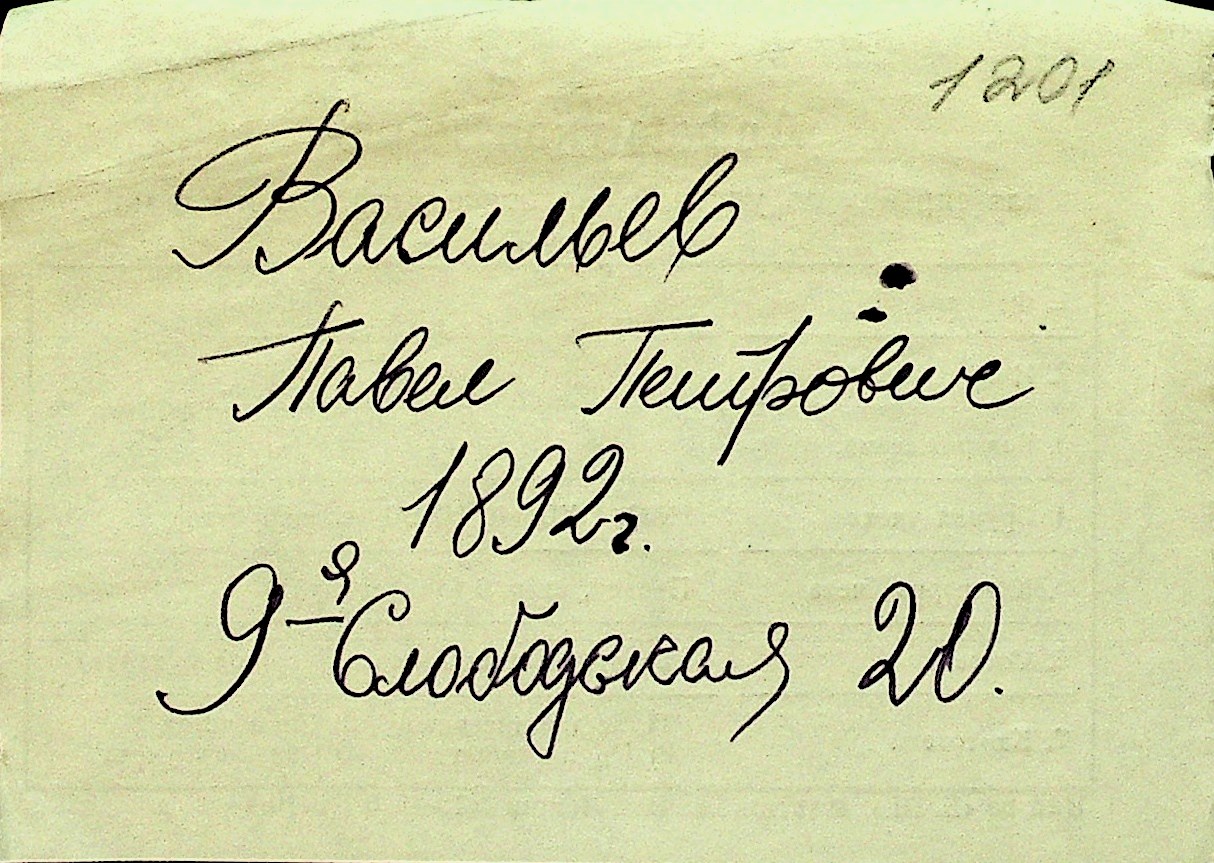 1201
Васильев
Павел Петрович
1892г.
9-я Слободская 20.